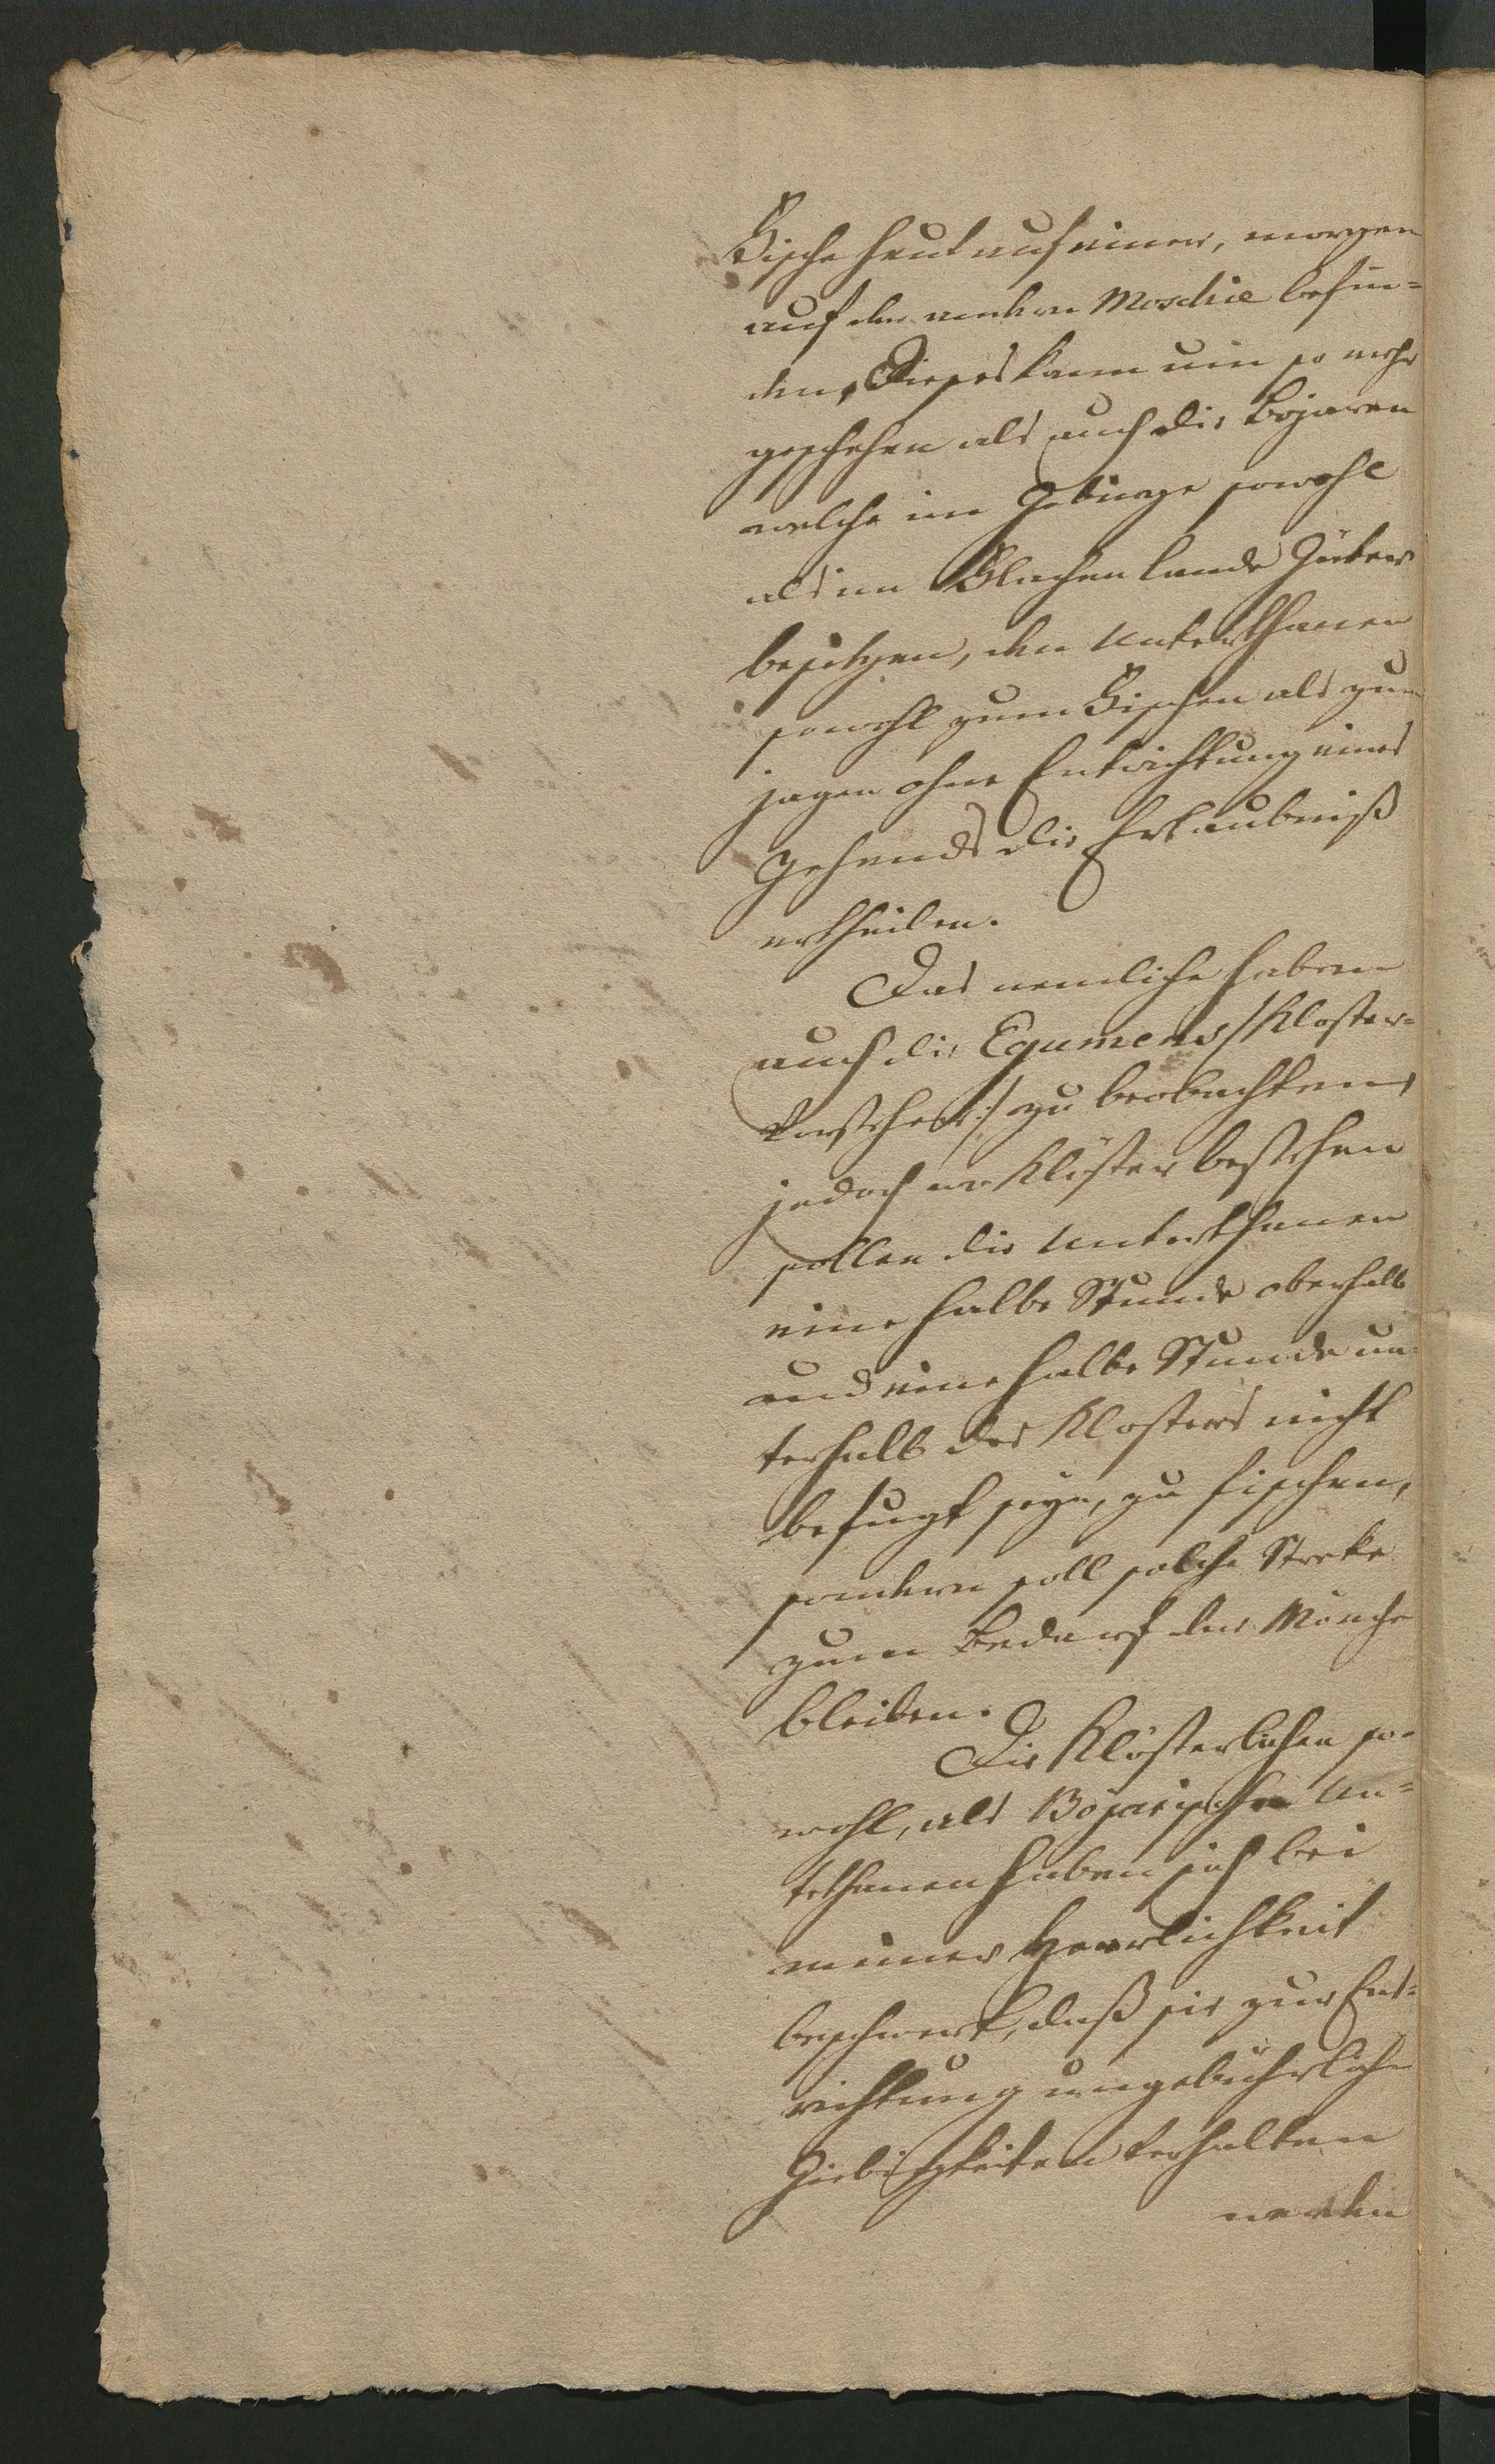 Fische heut auf einer, morgen
auf der andern Moschie befin=
den, Dieses kann um so mehr
geschehen als auch die Bojaren
welche im Gebürge sowohl
als im Flachen Lande Güter
besitzen, den Unterthanen
sowohl zum Fischen als zum
jagen ohne Entrichtung eines
Zehends die Erlaubniß
ertheilen.
Das nemliche haben
auch die Egumens /Kloster=
Vorsteher:/ zu beobachten,
jedoch wo Klöster bestehen
sollen die Unterthanen
eine halbe Stunde oberhalb
und eine halbe Stunde un=
terhalb des Klosters nicht
befugt seyn, zu fischen,
sondern soll solche Streke
zum Bedarf der Mönche
bleiben.
Die Klösterlichen so=
wohl, als Bojarischen Un=
terthanen haben sich bei
meiner Herrlichkeit
beschwert, daß sie zur Ent=
richtung ungebührlicher
Giebigkeiten verhalten
werden